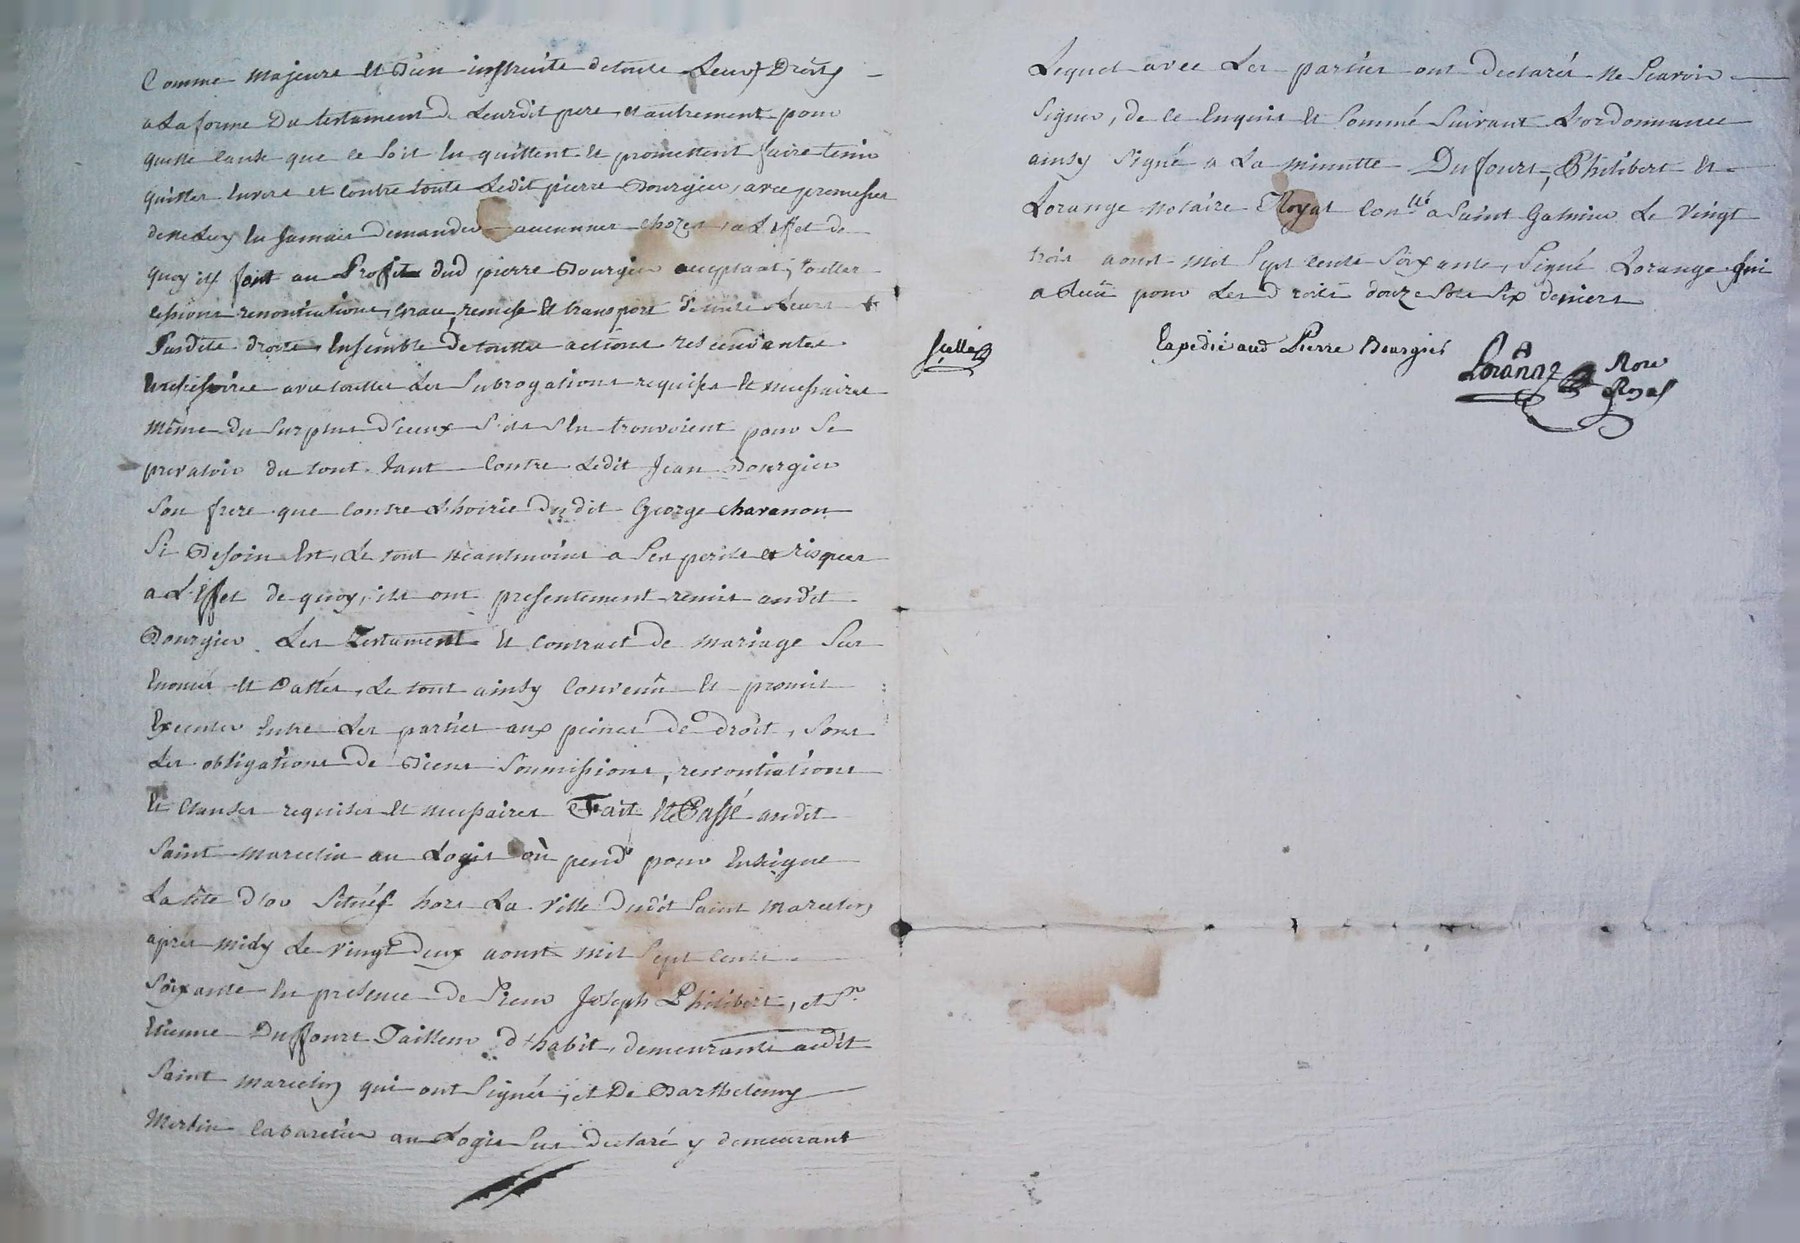 Comme majeurs et bien instruits de touts Leurs Droits
a La forme Du testament de Leurdit pere, et autrement pour
quelle cause que ce soit en quittent et promettent faire tenir
quitter envers et contre touts Ledit pierre Bourgier, avec promesses
de ne Luy en Jamais Demander aucunnes chozes, a L'effet de
quoy ils font au Profit dud pierre Bourgier acceptant, touttes
cessions renontiations, grace, remise Et transport de touts Leurs
Susdits droits Ensemble De touttes actions rescindantes
Et rescisoires avec touttes Les Subrogations requises Et necessaires
même Du Surplus D'iceux S'ils S'en trouvoient pour Se
prevaloir du tout tant Contre Ledit Jean Bourgier
Son frere que contre L'hoirie Dudit George Chavanon
Si Besoin Est, Le tout néantmoins a Ses perils et risques
a L'Effet de quoy, ils ont presentement remis audit
Bourgier Les Testament Et Contract de mariage Sus
Enoncés Et Dattés, Le tout ainsy Convenû Et promis
Executer Entre Les parties aux peines de droit, Sous
Les obligations de Biens Soumissions, renontiations
Et Clauses requises Et necessaires Fait Et Passé audit
Saint marcelin au Logis où pend pour Ensigne
La tête d'or Situés hors La Ville Dudit Saint Marcelin
après midy Le Vingt Deux aoust mil Sept Cents
Soixante En presence de Sieur Joseph Philibert, et Sr.
Etienne Duffours Tailleur d'habit, demeurants audit
Saint marcelin qui ont Signés, et De Barthelemy
Merlin Cabaretier au Logis Sus declaré y demeurant
Lequel avec Les parties ont declarés ne Scavoir
Signer, de ce Enquis Et Sommé Suivant L'ordonnance
ainsy Signé a La minutte Dufours, Philibert Et
Lorange notaire Royal Con.llé a Saint Galmier Le Vingt
trois aoust mil Sept Cents Soixante, Signé Lorange qui
a Reçû pour Les Droits douze Sols Six deniers
Scellé
Expedié aud Pierre Bourgier
Lorange Nore
Royal